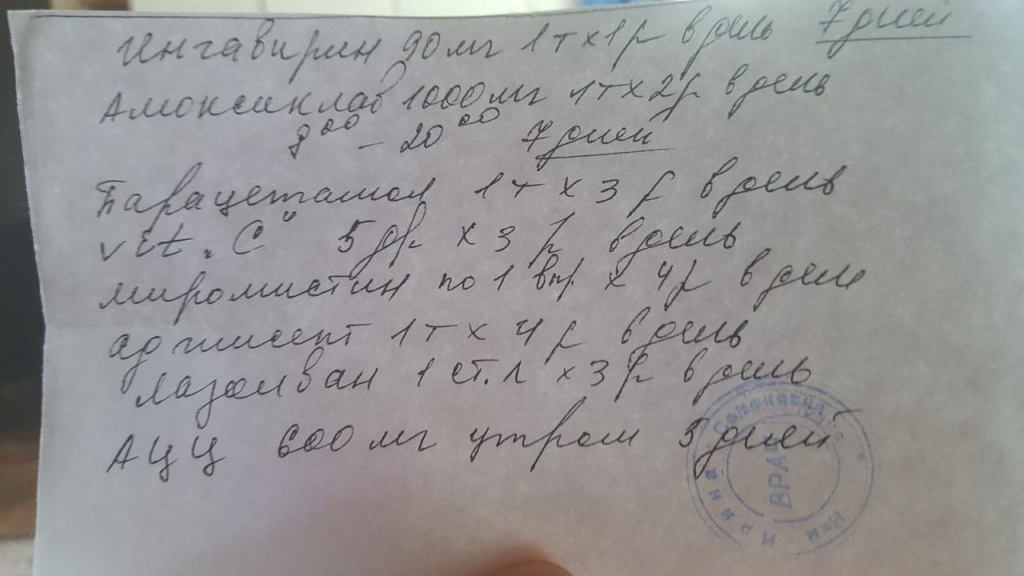 Ингавирин 90 мг 1т х 1р в день 7 дней
Амоксиклав 1000 мг 1т х 2р в день
8⁰⁰ – 20⁰⁰ 7 дней
Парацетамол 1т х 3 р в день
vit. "С" 5 др х 3 р в день
миромистин по 1 впр. х 4р в день
аджисепт 1т х 4 р в день
Лазолван 1 ст. л х 3 р в день
АЦЦ 600 мг утром 5 дней
ВРАЧ
Ирина